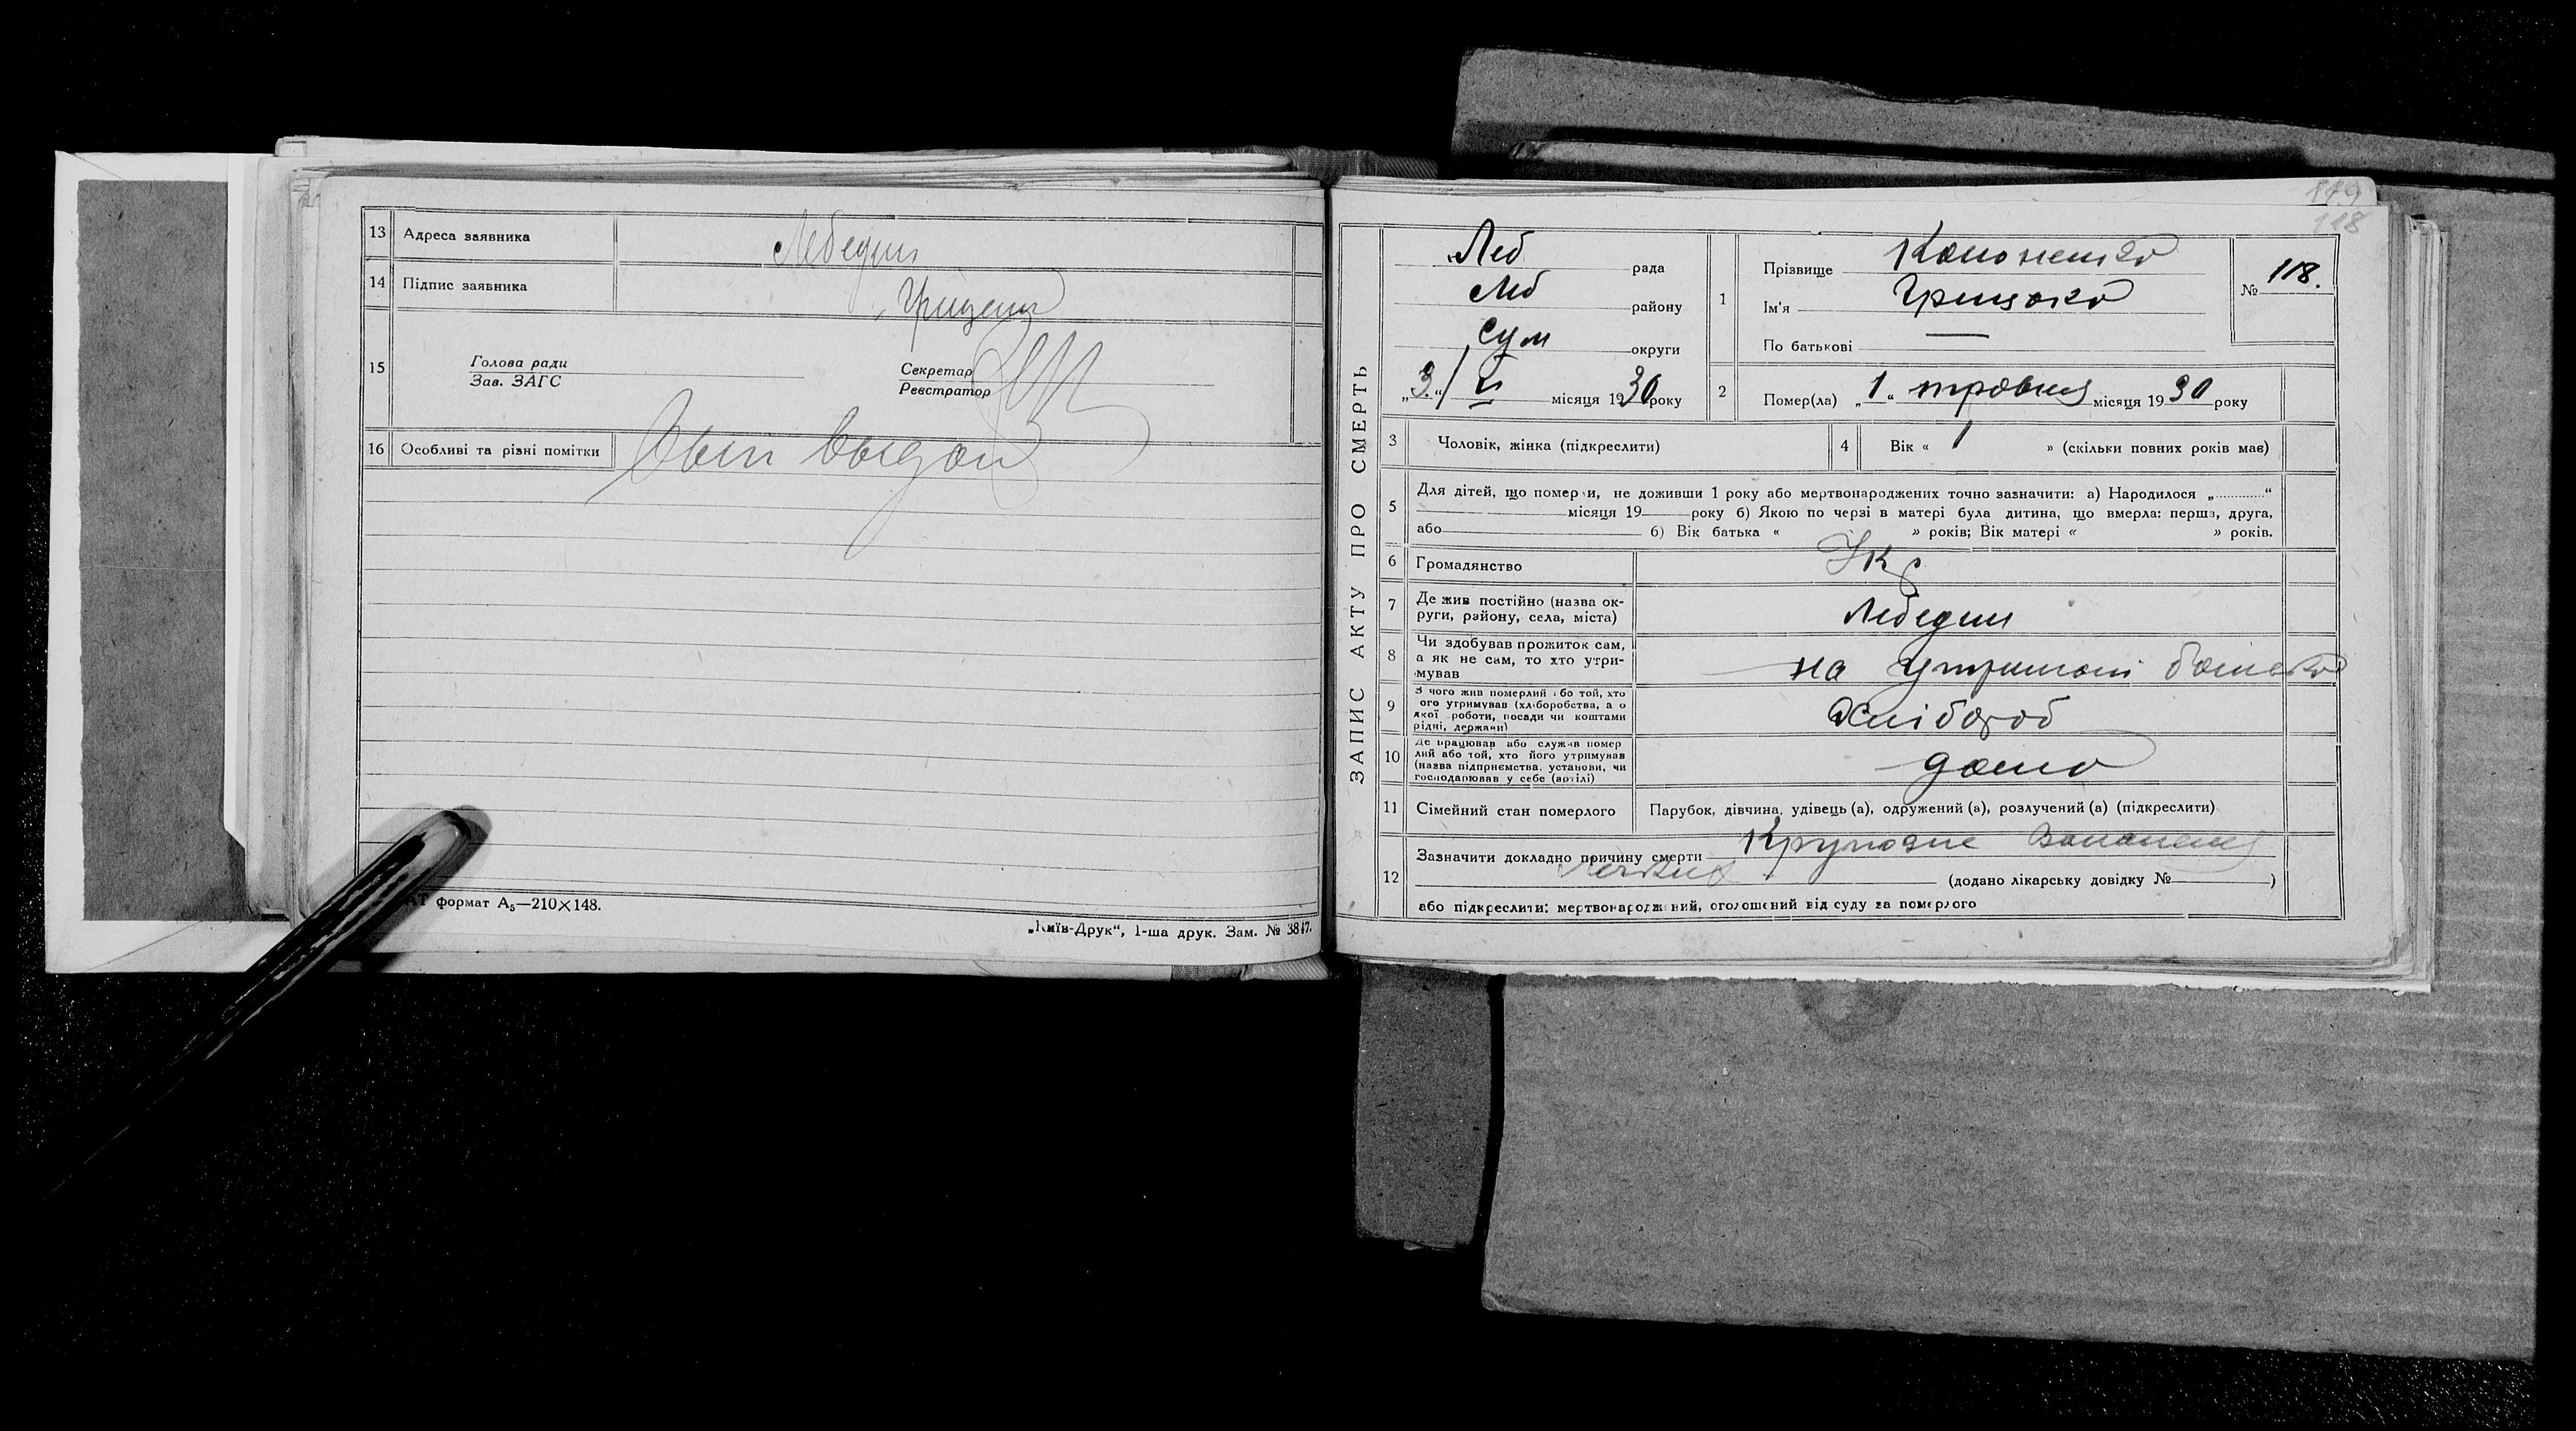 13 Адреса заявника Лебедин
14 Підпис заявника Грицен
15 Голова ради
Зав. ЗАГС
Секретар
Реєстратор
16 Особливі та різні помітки выдан
формат А5—210×148.
„Київ-Друк“, 1-ша друк. Зам. № 3847.
179
118
ЗАПИС АКТУ ПРО СМЕРТЬ
Леб рада
Леб району
Сум округи
„3“/V місяця 1930 року
1 Прізвище Кононенко
Ім'я Грицько
По батькові —
№ 118.
2 Помер(ла) „1“ травня місяця 1930 року
3 Чоловік, жінка (підкреслити)
4 Вік « 1 » (скільки повних років має)
5 Для дітей, що померли, не доживши 1 року або мертвонароджених точно зазначити: а) Народилося „ “
місяця 19 року б) Якою по черзі в матері була дитина, що вмерла: перша, друга,
або б) Вік батька « » років; Вік матері « » років.
6 Громадянство Укр
7 Де жив постійно (назва ок-
руги, району, села, міста) Лебедин
8 Чи здобував прожиток сам,
а як не сам, то хто утри-
мував на утриманi батька
9 З чого жив померлий або той, хто
ого утримував (хліборобства, а о
якої роботи, посади чи коштами
рідні, держави) Хлібороб
10 Де працював або служив помер
лий або той, хто його утримував
(назва підприємства, установи, чи
господарював у себе (артілі) дома
11 Сімейний стан померлого Парубок, дівчина, удівець (а), одружений (а), розлучений (а) (підкреслити)
12 Зазначити докладно причину смерти Крупозне Запалення
легких
(додано лікарську довідку № )
або підкреслити: мертвонароджений, оголошений від суду за померлого